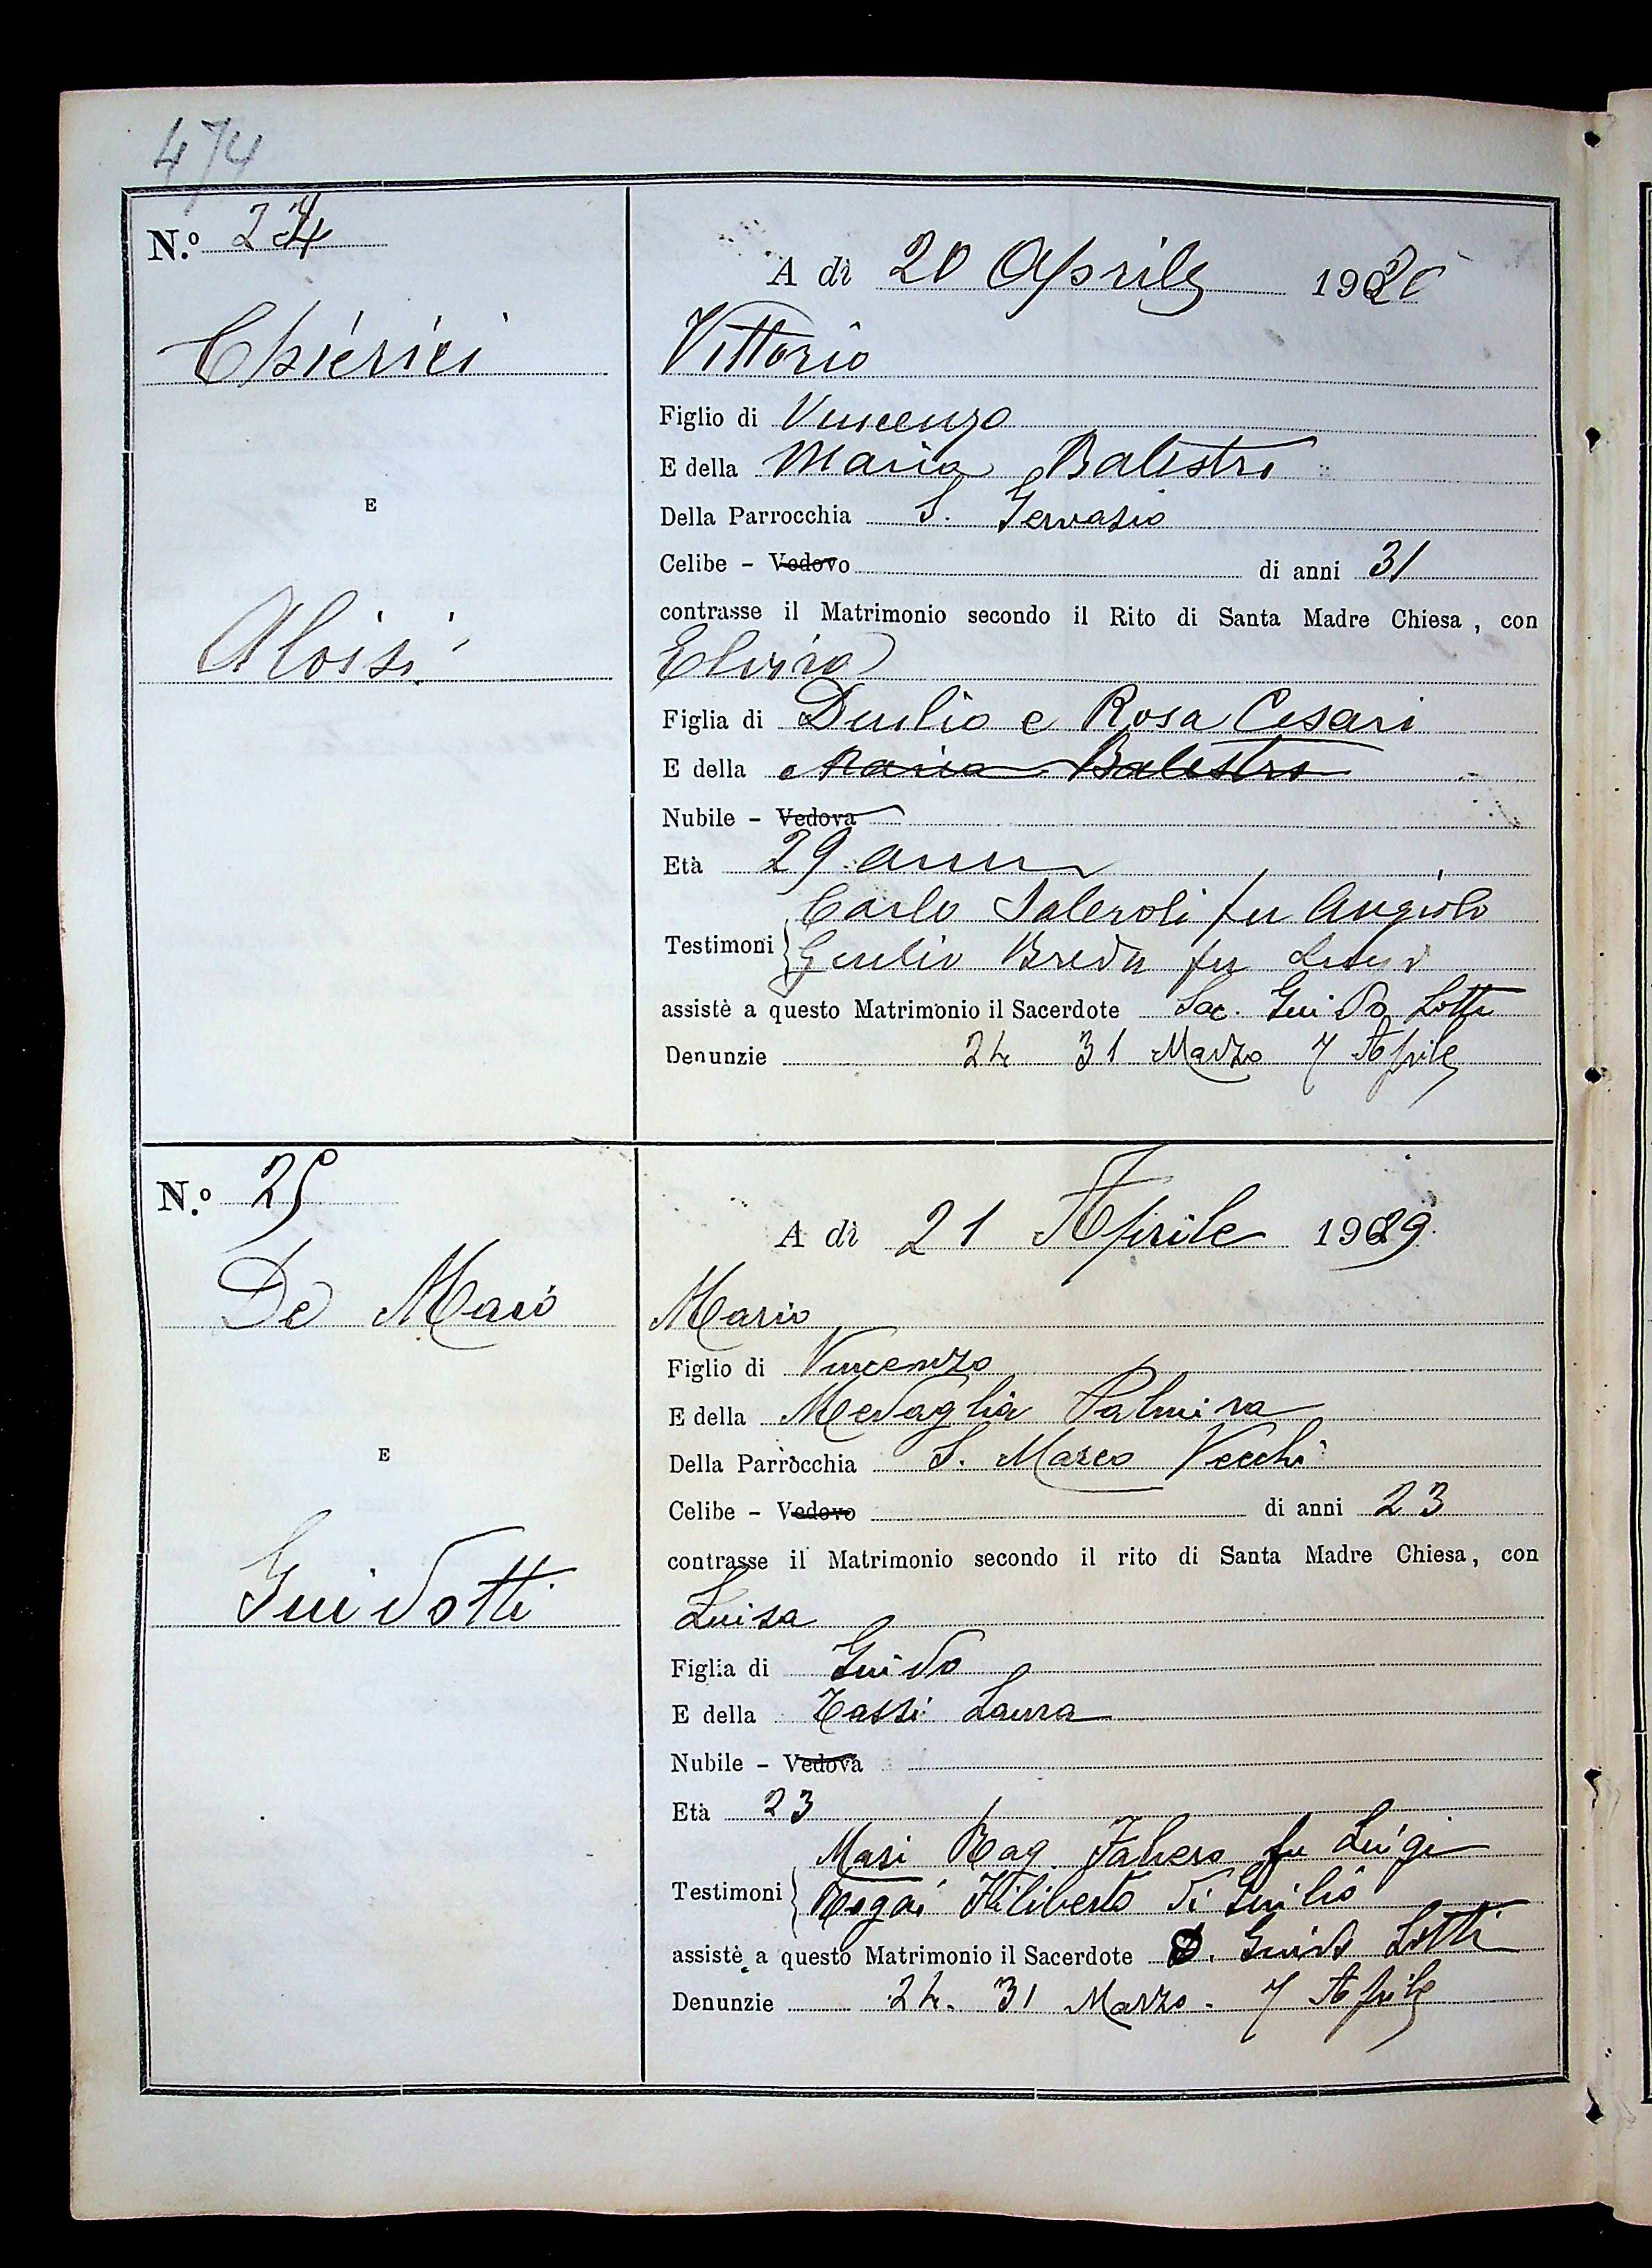 474
N.° 24
A dì 20 Aprile 1920
Chierici
Vittorio
Figlio di Vincenzo
E della Maria Balestri
Della Parrocchia S. Gervasio
E
Celibe - Vedovo di anni 31
contrasse il Matrimonio secondo il Rito di Santa Madre Chiesa, con
Aloisi
Elvira
Figlia di Duilio e Rosa Cesari
E della Maria Balestri
Nubile - Vedova
Età 29 anni
Carlo fu Angiolo
Testimoni Giulio Breda fu
assistè a questo Matrimonio il Sacerdote Sac. Guido Lotti
Denunzie 24 31 Marzo 7 Aprile
N.° 25
A dì 21 Aprile 1929
De Masi
Mario
Figlio di Vincenzo
E della Medaglia Palmira
Della Parrocchia S. Marco Vecchio
E
Celibe - Vedovo di anni 23
contrasse il Matrimonio secondo il rito di Santa Madre Chiesa, con
Guidotti
Luisa
Figlia di Guido
E della Tassi Laura
Nubile - Vedova
Età 23
Masi Rag. fu Luigi
Testimoni Filiberto di Giulio
assistè a questo Matrimonio il Sacerdote D. Guido Lotti
Denunzie 24. 31 Marzo - 7 Aprile